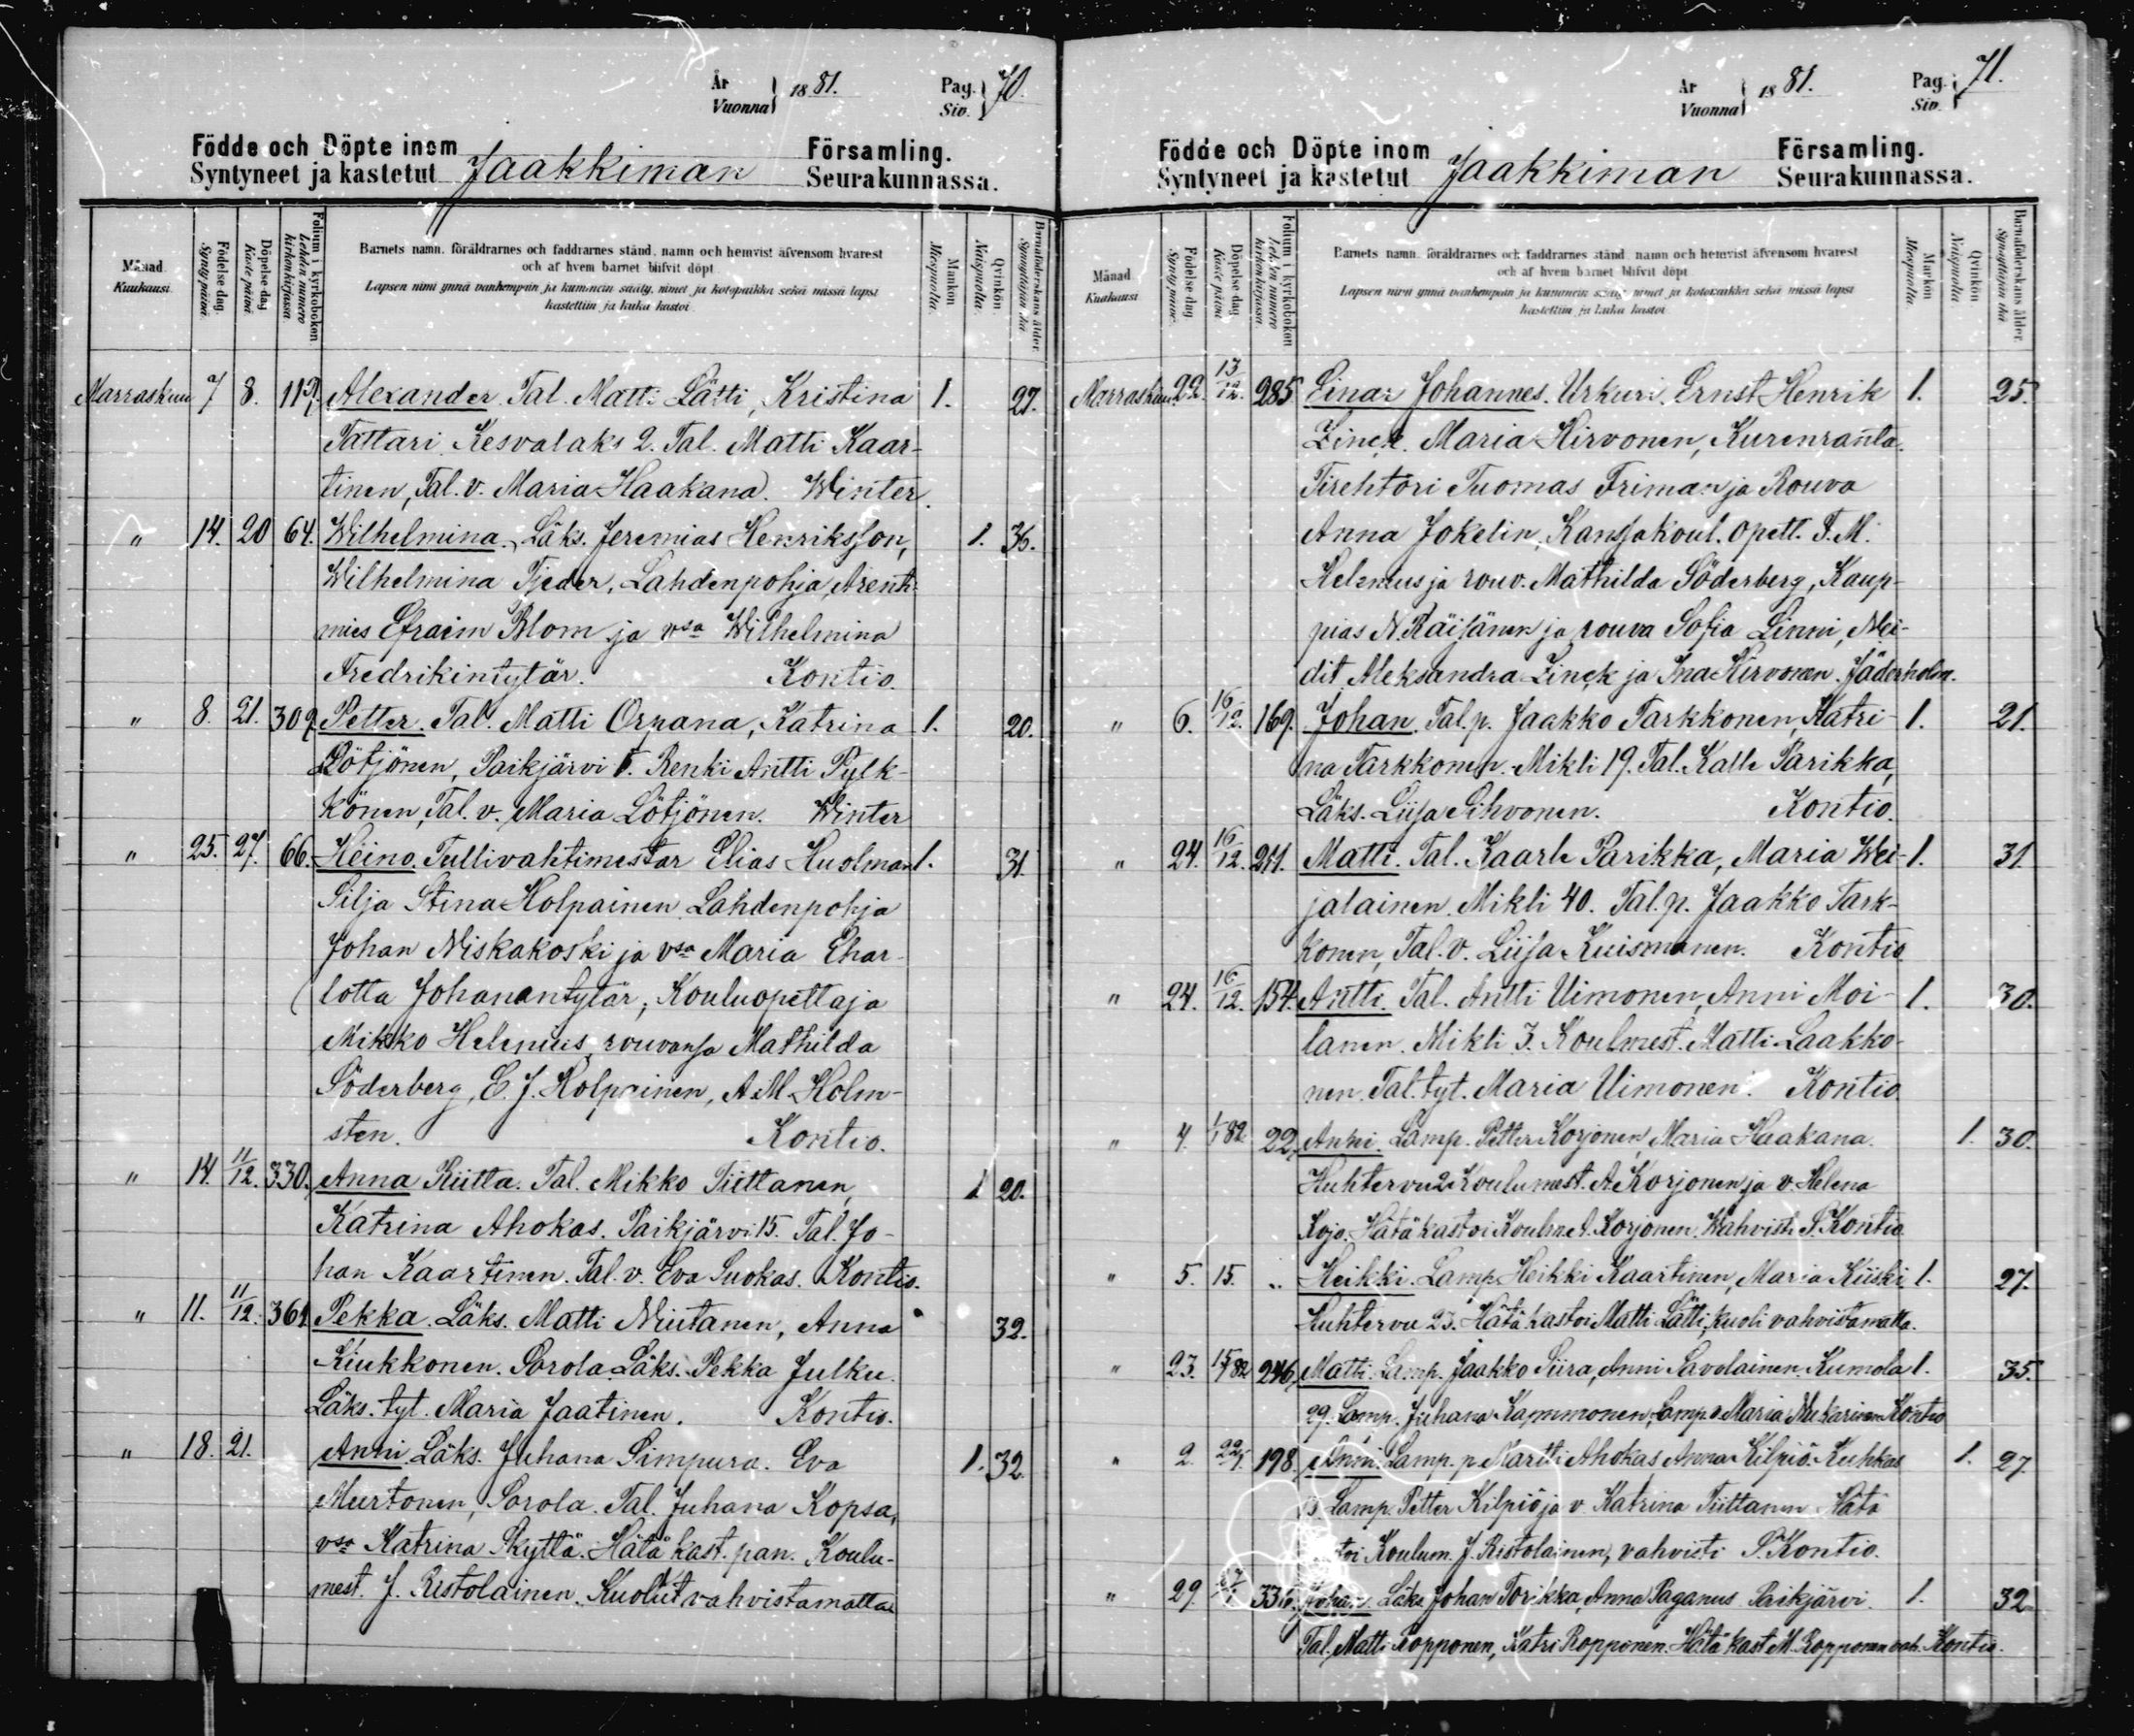 År
Vuonna 1881.
Pag.
Siv. 70.
Födde och Döpte inom
Syntyneet ja kastetut Jaakkiman Församling.
Seurakunnassa.
Månad
Kuukausi
Födelse dag
Synty päivä.
Döpelse dag
Kaste päivä.
Folium i kyrkoboken
Lehden numero
kirkonkirjassa.
Barnets namn, föräldrarnes och faddrarnes stånd, namn och hemvist äfvensom hvarest
och af hvem barnet blifvit döpt.
Lapsen nimi ynnä vanhempain ja kummein sääty, nimet ja kotopaikka sekä missä lapsi
kastettiin ja kuka kastoi
Mankön
Miespuolta.
Qvinkön
Naispuolta.
Barnaföderskans ålder.
Synnyttäjän ikä.
Marraskuu 7 8. 119. Alexander. Tal. Matti Lätti, Kristina 1. 27.
Tattari Kesvalaks 2. Tal. Matti Kaar-
tinen, Tal. v. Maria Haakana. Winter.
" 14. 20 64. Wilhelmina. Läks. Jeremias Henriksson, 1. 36.
Wilhelmina Tjeder, Lahdenpohja, Arenti-
mies Efraim Blom ja vsa Wilhelmina
Fredrikintytär. Kontio.
" 8. 21. 309. Petter. Tal. Matti Orpana, Katrina 1. 20.
Lötjönen, Paikjärvi 5. Renki Antti Pylk-
könen, Tal. v. Maria Lötjönen. Winter
" 25. 27. 66. Heino. Tullivahtimestar Elias Huolman 1. 31.
Silja Stina Holpainen Lahdenpohja
Johan Niskakoski ja vsa Maria Char-
lotta Johanantytär, Kouluopettaja
Mikko Helenius rouvansa Mathilda
Söderberg, E. J. Holpainen, A. M. Holm-
sten. Kontio.
" 14. 11/12. 330. Anna Riitta. Tal. Mikko Tiittanen, 1 20.
Katrina Ahokas. Paikjärvi 15. Tal. Jo-
han Kaartinen. Tal. v. Eva Suokas. Kontio.
" 11. 11/12. 361 Pekka. Läks. Matti Miutanen, Anna 32.
Kiukkonen. Sorola. Läks. Pekka Julku.
Läks. tyt. Maria Jaatinen. Kontio.
" 18. 21. Anni Läks. Juhana Simpura. Eva 1. 32.
Murtonen, Sorola. Tal. Juhana Kopsa,
vsa Katrina Skyttä. Hätä kast. pan. Koulu-
mest. J. Ristolainen. Kuollut vahvistamatta
År
Vuonna 1881.
Pag.
Siv. 71.
Födde och Döpte inom
Syntyneet ja kastetut Jaakkiman Församling.
Seurakunnassa.
Månad
Kuukausi
Födelse dag
Synty päivä.
Döpelse dag
Kaste päivä.
Folium i kyrkoboken
Lehden numero
kirkonkirjassa.
Barnets namn, föräldrarnes och faddrarnes stånd, namn och hemvist äfvensom hvarest
och af hvem barnet blifvit döpt
Lapsen nimi ynnä vanhempain ja kummein sääty, nimet ja kotopaikka sekä missä lapsi
kastettiin ja kuka kastoi
Mankön
Miespuolta.
Qvinkön
Naispuolta
Barnaföderskans ålder.
Synnyttäjän ikä
Marraskuu. 22. 13/12. 285 Einar Johannes. Urkuri. Ernst Henrik 1. 25.
Zinck. Maria Hirvonen, Kurenranta.
Tirehtöri Tuomas Friman ja Rouva
Anna Jokelin, Kansakoul. opett. F. M.
Helenius ja rouv. Mathilda Söderberg, Kaup-
pias N. Räisänen ja rouva Sofia Linni, Nei-
dit Aleksandra Zinck ja Ina Hirvonen. Jäderholm.
" 6. 16/12. 169. Johan. Tal. p. Jaakko Tarkkonen, Katri- 1. 21.
na Tarkkonen. Mikli 19. Tal. Kalle Parikka,
Läks. Liisa Sihvonen. Kontio.
" 24. 16/12. 211. Matti. Tal. Kaarle Parikka, Maria Wei- 1. 31.
jalainen. Mikli 40. Tal. p. Jaakko Tark-
konen, Tal. v. Liisa Kuismanen. Kontio
" 24. 16/12. 154. Antti. Tal. Antti Uimonen, Anni Moi- 1. 30.
lanen. Mikli 3. Koulmest. Matti Laakko-
nen. Tal. tyt. Maria Uimonen. Kontio
" 4. 1/1 82 22. Anni. Lamp. Petter Korjonen, Maria Haakana. 1. 30.
Huhtervu 2 Koulumest. A. Korjonen ja v. Helena
Kojo. Hätäkastoi Koulm. A. Korjonen. Wahvisti S. Kontio
" 5. 15. .. Heikki. Lamp. Heikki Kaartinen, Maria Kiiski 1. 27.
Huhtervu 23. Hätä kastoi Matti Lätti, kuoli vahvistamatta.
" 23. 15/1 82 246 Matti. Lamp. Jaakko Siira, Anni Savolainen. Kumola 1. 35.
29. Lamp. Juhana Kammonen, Lamp. v. Maria Mukarinen Kontio
" 2. 22/1. 198. Anni. Lamp. p. Martti Ahokas Anna Kilpiö. Kuhkas 1. 27.
Lamp. Petter Kilpiö ja v. Katrina Tiittanen Hätä
Koulum. J. Ristolainen, vahvisti S. Kontio.
" 29. 336. Johan. Läks. Johan Torikka, Anna Paganus Paikjärvi 1. 32
Tal. Matti Ropponen, Katri Ropponen. Hätä kast M. Ropponen vah. Kontio.